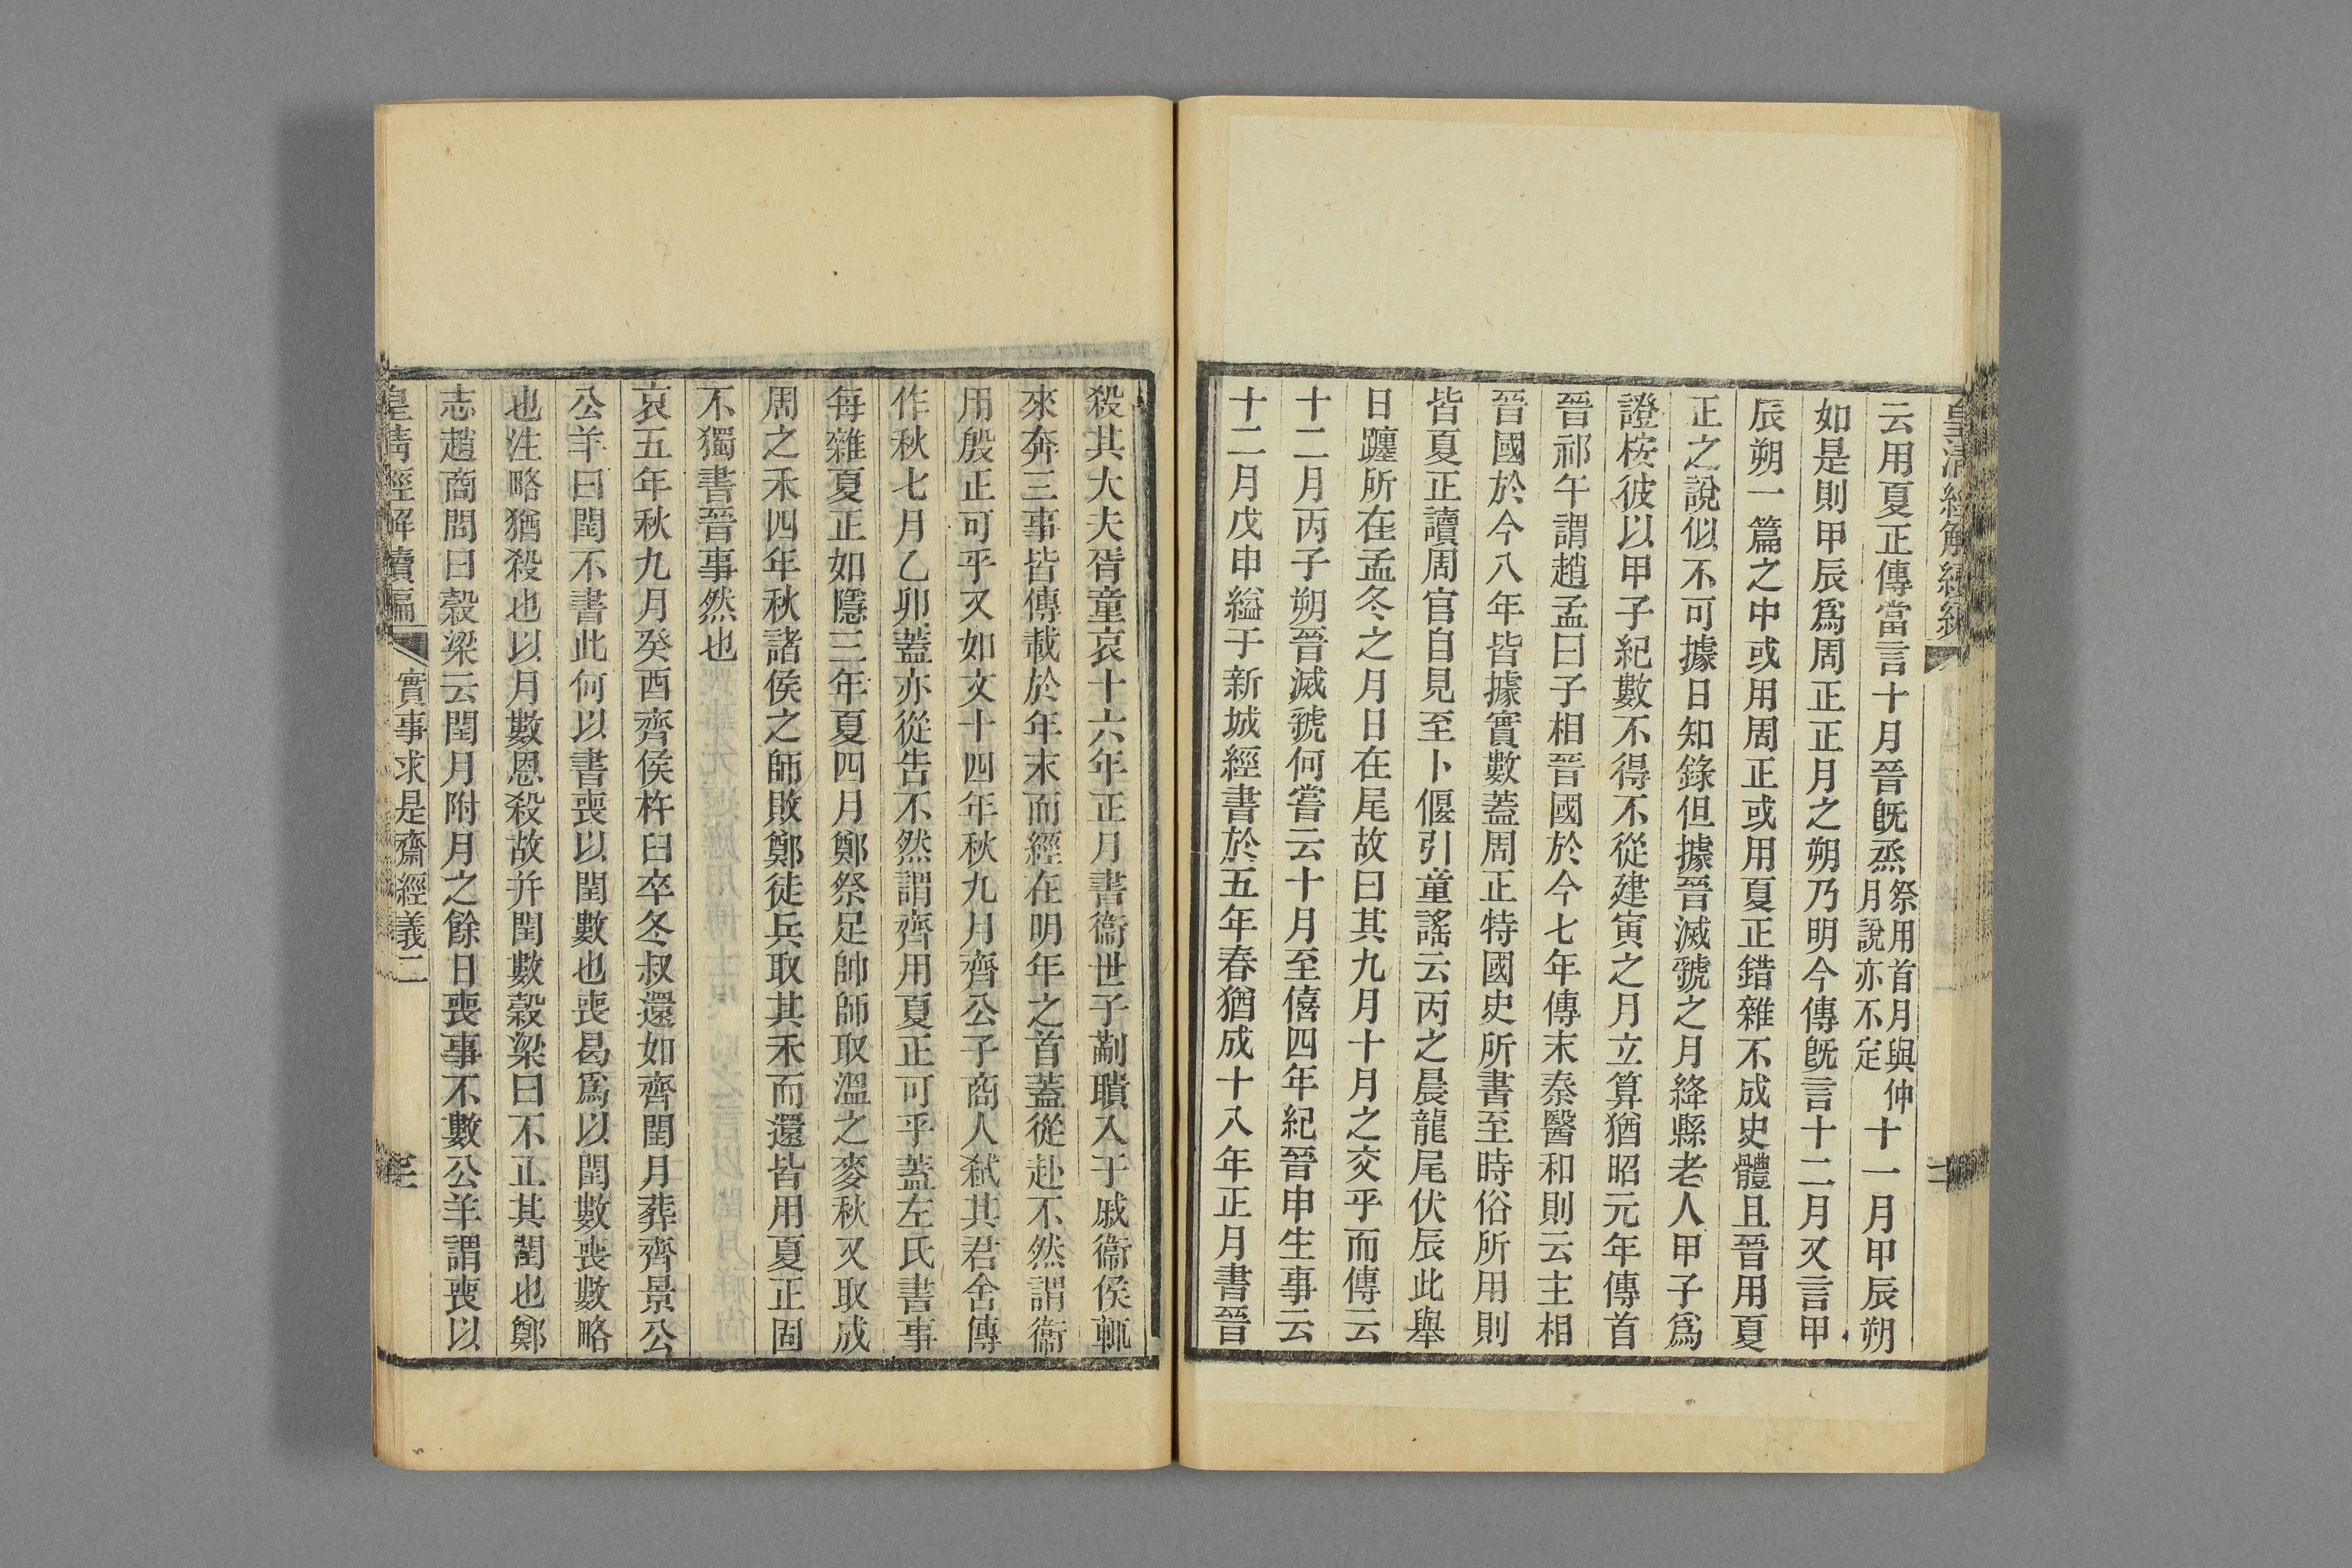 皇清經解續編
云用夏正傳當言十月晉旣烝祭用首月與仲月說亦不定十一月甲辰朔
如是則甲辰爲周正正月之朔乃明今傳旣言十二月又言甲
辰朔一篇之中或用周正或用夏正錯雜不成史體且晉用夏
正之說似不可據日知錄但據晉滅虢之月絳縣老人甲子爲
證桉彼以甲子紀數不得不從建寅之月立算猶昭元年傳首
晉祁午謂趙孟曰子相晉國於今七年傳末秦醫和則云主相
晉國於今八年皆據實數蓋周正特國史所書至時俗所用則
皆夏正讀周官自見至卜偃引童謠云丙之晨龍尾伏辰此舉
日躔所在孟冬之月日在尾故曰其九月十月之交乎而傳云
十二月丙子朔晉滅虢何嘗云十月至僖四年紀晉申生事云
十二月戊申縊于新城經書於五年春猶成十八年正月書晉
殺其大夫胥童哀十六年正月書衞世子蒯聵入于戚衞侯輒
來奔三事皆傳載於年末而經在明年之首蓋從赴不然謂衞
用殷正可乎又如文十四年秋九月齊公子商人弑其君舍傳
作秋七月乙卯蓋亦從告不然謂齊用夏正可乎蓋左氏書事
每雜夏正如隱三年夏四月鄭祭足帥師取溫之麥秋又取成
周之禾四年秋諸侯之師敗鄭徒兵取其禾而還皆用夏正固
不獨書晉事然也
哀五年秋九月癸酉齊侯杵臼卒冬叔還如齊閏月葬齊景公
公羊曰閏不書此何以書喪以閏數也喪曷爲以閏數喪數略
也注略猶殺也以月數恩殺故并閏數穀梁曰不正其閏也鄭
志趙商問曰穀梁云閏月附月之餘日喪事不數公羊謂喪以
皇清經解續編 實事求是齋經義二